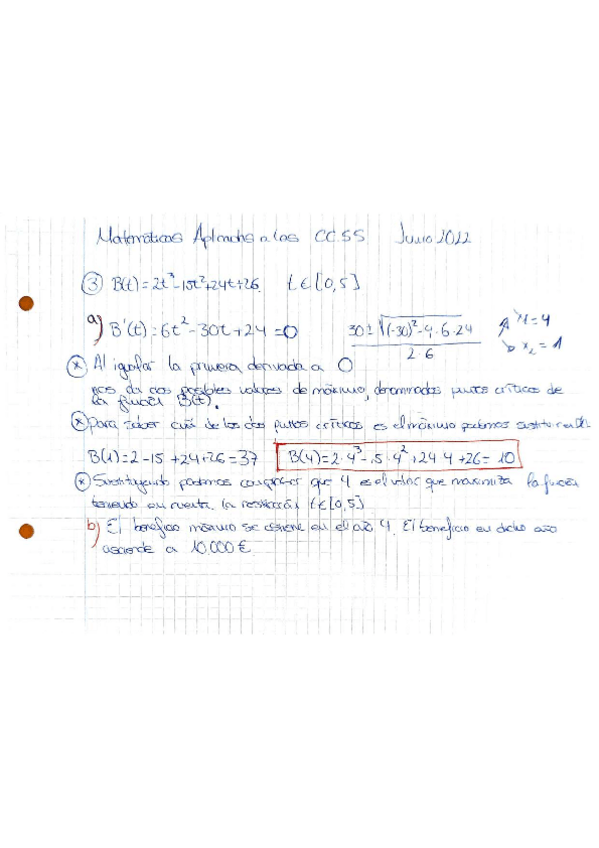 Matemáticas Aplicadas a las CCSS Junio 2022
③ B(t) = 2t³-15t²+24t+26. t ∈ [0,5]
a) B'(t) = 6t² - 30t + 24 = 0 30 ± √(-30)² - 4·6·24 / 2·6 x₁ = 4 x₂ = 1
* Al igualar la primera derivada a 0
nos da dos posibles valores de máximo, denominados puntos críticos de
la función B(t).
* Para saber cuál de los dos puntos críticos es el máximo podemos sustituir en
B(1) = 2 - 15 + 24 + 26 = 37 B(4) = 2·4³ - 15·4² + 24·4 + 26 = 10
* Sustituyendo podemos comprobar que 4 es el valor que maximiza la función
teniendo en cuenta la restricción t ∈ [0,5]
b) El beneficio máximo se obtiene en el año 4. El beneficio en dicho año
asciende a 10.000 €